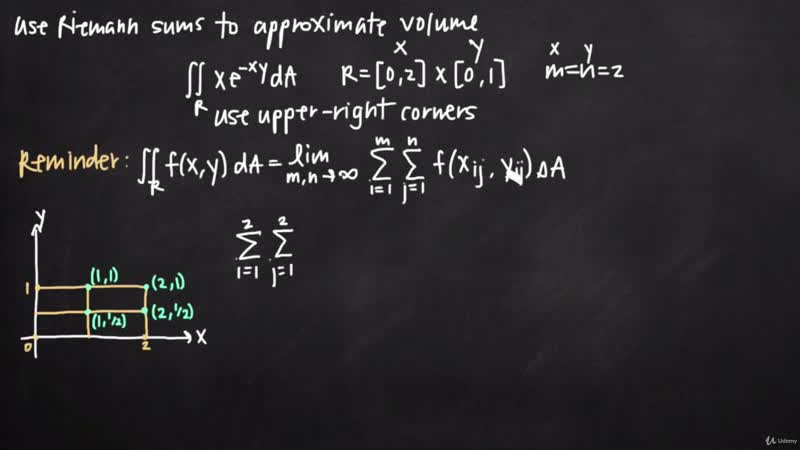 use Riemann sums to approximate volume
x y x y
∬_R xe^{-xy}dA R=[0,2]x[0,1] m=n=2
use upper-right corners
Reminder: ∬_R f(x,y)dA = lim_{m,n→∞} ∑_{i=1}^{m} ∑_{j=1}^{n} f(x_{ij}, y_{ij})ΔA
y
∑_{i=1}^{2} ∑_{j=1}^{2}
(1,1) (2,1)
1
(1,1/2) (2,1/2)
0 2 x
Udemy